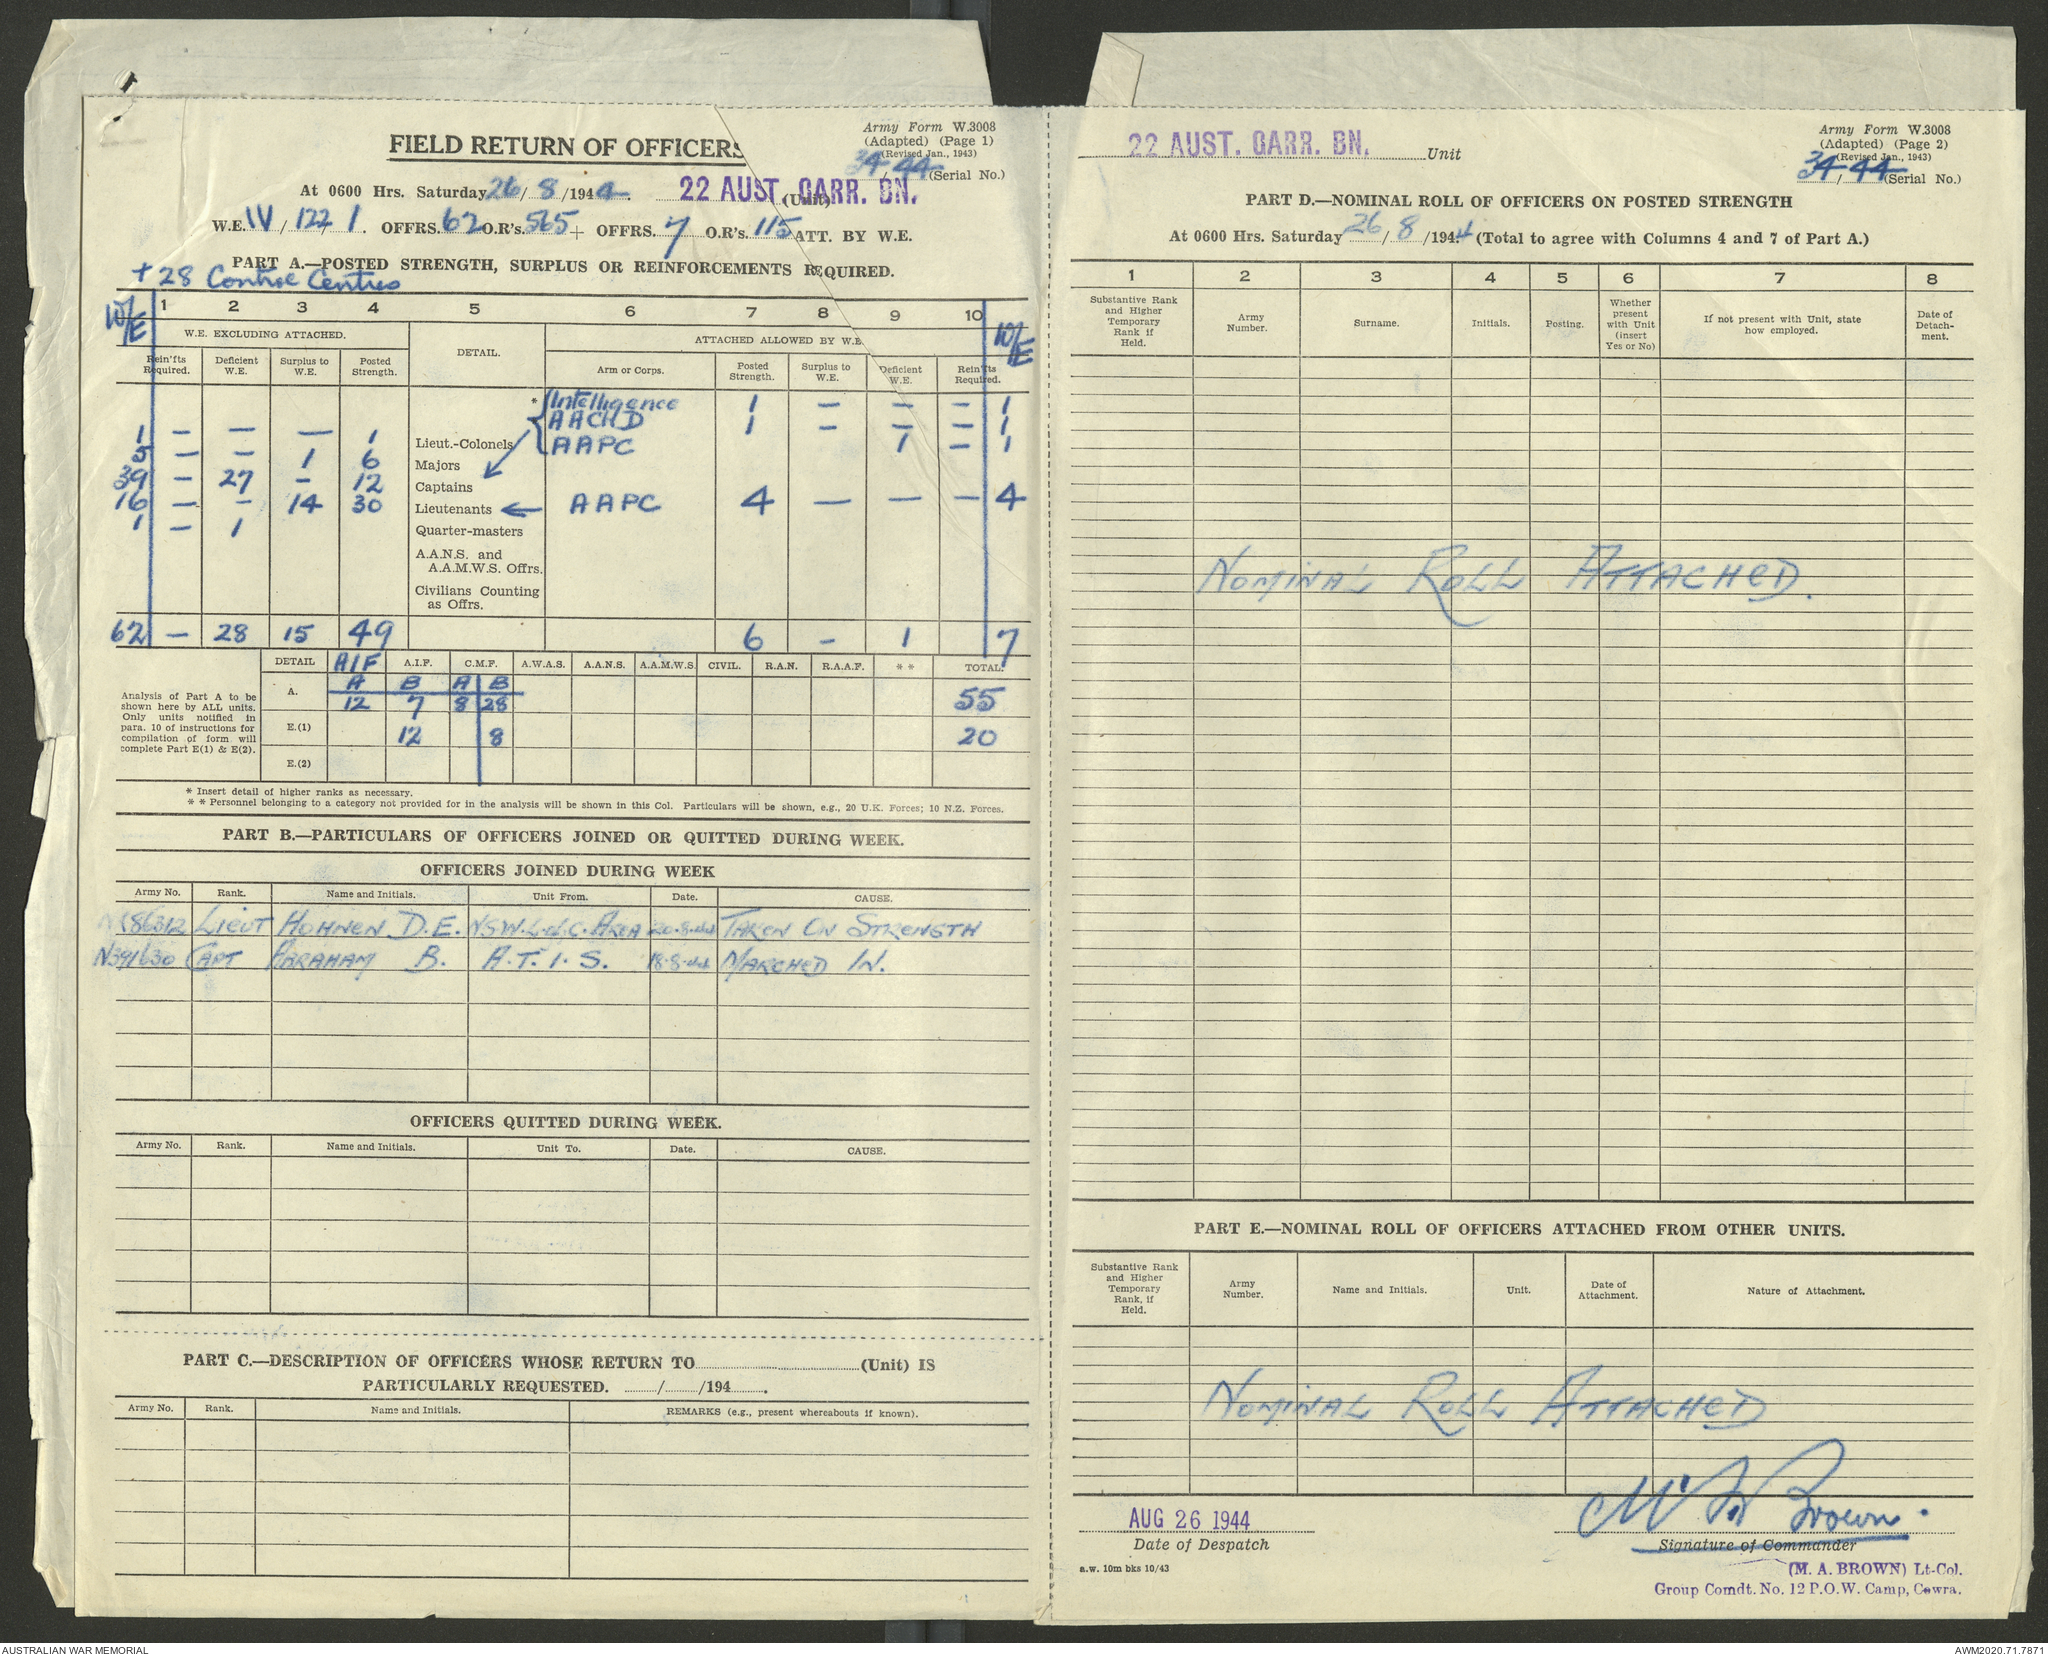 Army Form W.3008
(Adapted) (Page 1)
(Revised Jan., 1943)
34/44 (Serial No.)
FIELD RETURN OF OFFICERS
At 0600 Hrs. Saturday 26/8/1944. 22 AUST. GARR. BN. (Unit)
W.E. IV/122/1. OFFRS. 62 O.R's. 565 + OFFRS. 7 O.R's. 115 ATT. BY W.E.
PART A.—POSTED STRENGTH, SURPLUS OR REINFORCEMENTS REQUIRED.
+ 28 Control Centres
W/E 1 2 3 4 5 6 7 8 9 10 W/E
W.E. EXCLUDING ATTACHED. DETAIL. ATTACHED ALLOWED BY W.E.
Rein'fts Required. Deficient W.E. Surplus to W.E. Posted Strength. Arm or Corps. Posted Strength. Surplus to W.E. Deficient W.E. Rein'fts Required.
* Intelligence 1 — — — 1
AACHD 1 — — — 1
1 — — — 1 Lieut.-Colonels AAPC 1 — 1
5 — — 1 6 Majors
39 — 27 — 12 Captains
16 — — 14 30 Lieutenants AAPC 4 — — — 4
1 — 1 Quarter-masters
A.A.N.S. and
A.A.M.W.S. Offrs.
Civilians Counting
as Offrs.
62 — 28 15 49 6 — 1 7
DETAIL AIF A.I.F. C.M.F. A.W.A.S. A.A.N.S. A.A.M.W.S. CIVIL. R.A.N. R.A.A.F. * * TOTAL.
Analysis of Part A to be
shown here by ALL units.
Only units notified in
para. 10 of instructions for
compilation of form will
complete Part E(1) & E(2).
A. A B A B
12 7 8 28 55
E.(1) 12 8 20
E.(2)
* Insert detail of higher ranks as necessary.
* * Personnel belonging to a category not provided for in the analysis will be shown in this Col. Particulars will be shown, e.g., 20 U.K. Forces; 10 N.Z. Forces.
PART B.—PARTICULARS OF OFFICERS JOINED OR QUITTED DURING WEEK.
OFFICERS JOINED DURING WEEK
Army No. Rank. Name and Initials. Unit From. Date. CAUSE.
86312 LIEUT HOHNEN D.E. NSW.L.of.C. AREA 20.8.44 TAKEN ON STRENGTH
N391630 CAPT ABRAHAM B. A.T.I.S. 18.8.44 MARCHED IN.
OFFICERS QUITTED DURING WEEK.
Army No. Rank. Name and Initials. Unit To. Date. CAUSE.
PART C.—DESCRIPTION OF OFFICERS WHOSE RETURN TO (Unit) IS
PARTICULARLY REQUESTED. / /194 .
Army No. Rank. Name and Initials. REMARKS (e.g., present whereabouts if known).
22 AUST. GARR. BN. Unit
Army Form W.3008
(Adapted) (Page 2)
(Revised Jan., 1943)
34/44 (Serial No.)
PART D.—NOMINAL ROLL OF OFFICERS ON POSTED STRENGTH
At 0600 Hrs. Saturday 26/8/1944 (Total to agree with Columns 4 and 7 of Part A.)
1 2 3 4 5 6 7 8
Substantive Rank and Higher Temporary Rank if Held. Army Number. Surname. Initials. Posting. Whether present with Unit (insert Yes or No) If not present with Unit, state how employed. Date of Detach-ment.
NOMINAL ROLL ATTACHED.
PART E.—NOMINAL ROLL OF OFFICERS ATTACHED FROM OTHER UNITS.
Substantive Rank and Higher Temporary Rank, if Held. Army Number. Name and Initials. Unit. Date of Attachment. Nature of Attachment.
NOMINAL ROLL ATTACHED
AUG 26 1944
Date of Despatch
Brown.
Signature of Commander
(M. A. BROWN) Lt-Col.
Group Comdt. No. 12 P.O.W. Camp, Cowra.
a.w. 10m bks 10/43
AUSTRALIAN WAR MEMORIAL
AWM2020.71.7871